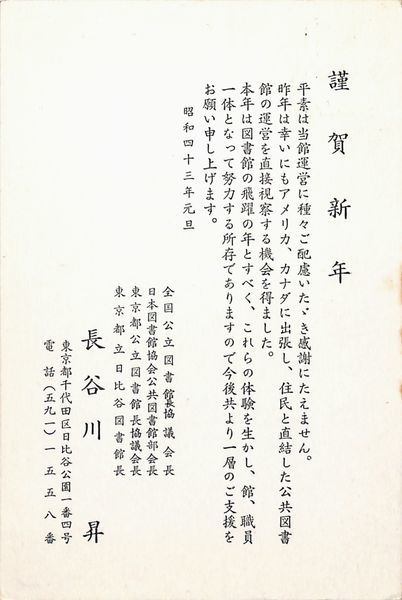 謹賀新年
平素は当館運営に種々ご配慮いたゞき感謝にたえません。
昨年は幸いにもアメリカ、カナダに出張し、住民と直結した公共図書
館の運営を直接視察する機会を得ました。
本年は図書館の飛躍の年とすべく、これらの体験を生かし、館、職員
一体となって努力する所存でありますので今後共より一層のご支援を
お願い申し上げます。
昭和四十三年元旦
全国公立図書館長協議会長
日本図書館協会公共図書館部会長
東京都公立図書館長協議会長
東京都立日比谷図書館長
長谷川昇
東京都千代田区日比谷公園一番四号
電話(五九一)一五五八番